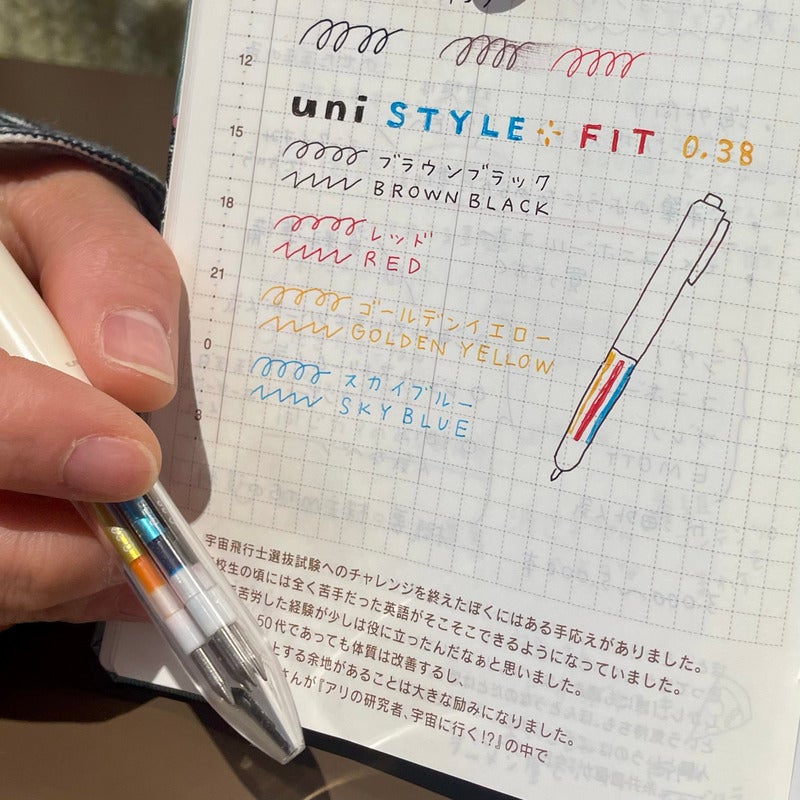 12
uni STYLE FIT 0.38
15
ブラウンブラック
BROWN BLACK
18
レッド
RED
21
ゴールデンイエロー
GOLDEN YELLOW
0
スカイブルー
SKY BLUE
3
宇宙飛行士選抜試験へのチャレンジを終えたぼくにはある手応えがありました。
校生の頃には全く苦手だった英語がそこそこできるようになっていました。
苦労した経験が少しは役に立ったんだなぁと思いました。
50代であっても体質は改善するし、
上する余地があることは大きな励みになりました。
さんが『アリの研究者、宇宙に行く!?』の中で